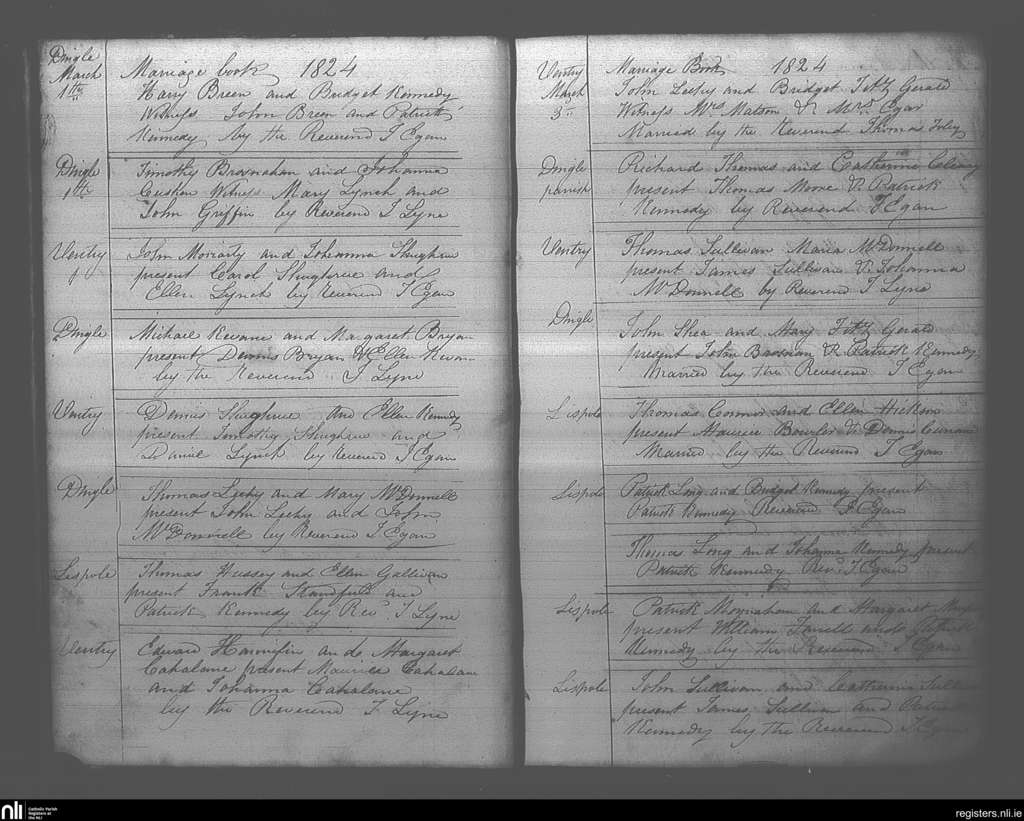 Dingle
March
1th
Marriage book 1824
Harry Breen and Bridget Kennedy
Witness John Breen and Patrick
Kennedy by the Reverend T Egan
Dingle
1th
Timothy Brosnahan and Johanna
Cushen Witness Mary Lynch and
John Griffin by Reverend T Lyne
Ventry
1
John Moriarty and Johanna Shughrue
present Carol Shughrue and
Ellen Lynch by Reverend T Egan
Dingle
Michael Kevane and Margaret Bryan
present Dennis Bryan & Ellen
by the Reverend T Lyne
Ventry
Dennis Shughrue and Ellen Kennedy
present Timothy Shughrue and
Daniel Lynch by Reverend T Egan
Dingle
Thomas Leehy and Mary McDonnell
present John Leehy and John
McDonnell by Reverend T Egan
Lispole
Thomas Hussey and Ellen Gallivan
present Frank and
Patrick Kennedy by Revd T Lyne
Ventry
Edward Hannifin and Margaret
Cahalane present Maurice Cahalane
and Johanna Cahalane
by the Reverend T Lyne
Ventry
March
3
Marriage Book 1824
John Leehy and Bridget Fitz Gerald
Witness Mrs Matson & Mrs Egan
Married by the Reverend Thomas Foley
Dingle
parish
Richard Thomas and Catherine
present Thomas Moore & Patrick
Kennedy by Reverend T Egan
Ventry
Thomas Sullivan Maria McDonnell
present James Sullivan & Johanna
McDonnell by Reverend T Lyne
Dingle
John Shea and Mary Fitz Gerald
present John Bosnan & Patrick Kennedy
Married by the Reverend T Egan
Lispole
Thomas Connor and Ellen Hickson
present Maurice Bowler & Dennis Curran
Married by the Reverend T Egan
Lispole
Patrick Long and Bridget Kennedy present
Patrick Kennedy Reverend T Egan
Thomas Long and Johanna Kennedy present
Patrick Kennedy Rev. T Egan
Lispole
Patrick Moynahan and Margaret
present William and Patrick
Kennedy by the Reverend T Egan
Lispole
John Sullivan and Catherine
present James Sullivan and Patrick
Kennedy by the Reverend T Egan
nli Catholic Parish
Registers at
the NLI
registers.nli.ie